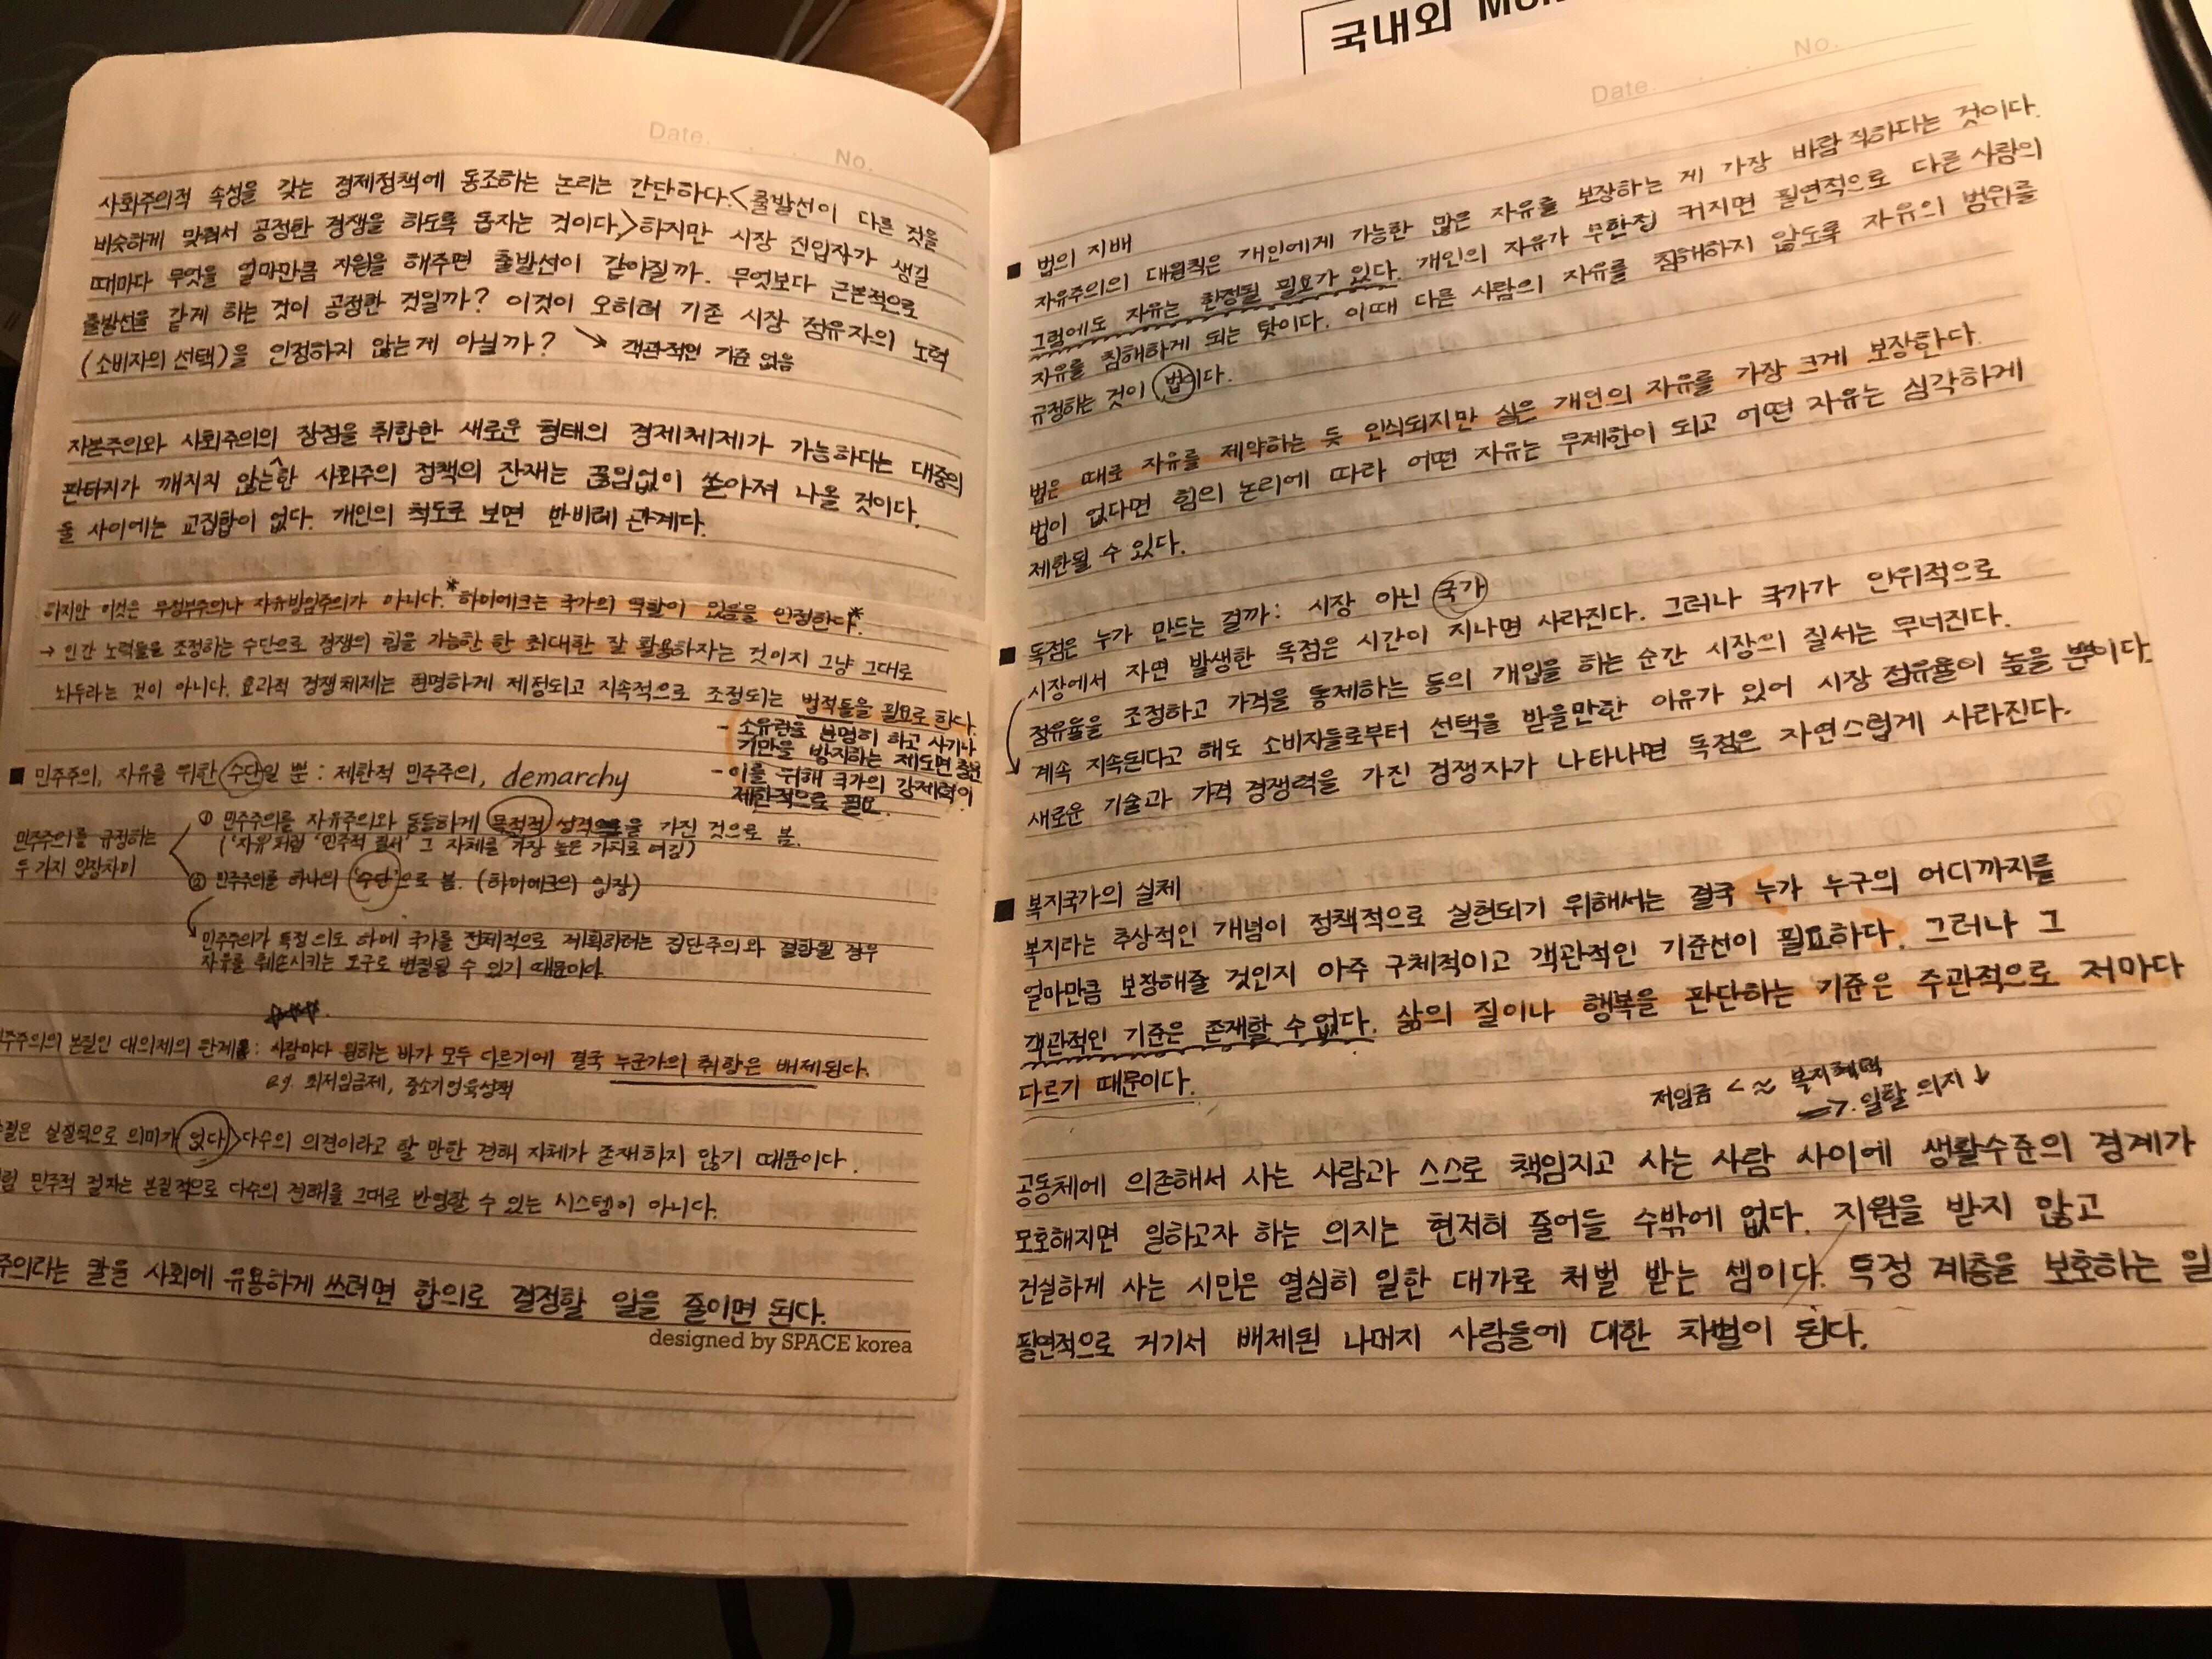 국내외
Date. . . No.
사회주의적 속성을 갖는 경제정책에 동조하는 논리는 간단하다.<출발선이 다른 것을
비슷하게 맞춰서 공정한 경쟁을 하도록 돕자는 것이다.>하지만 시장 진입자가 생길
때마다 무엇을 얼마만큼 지원을 해주면 출발선이 같아질까. 무엇보다 근본적으로
출발선을 같게 하는 것이 공정한 것일까? 이것이 오히려 기존 시장 점유자의 노력
(소비자의 선택)을 인정하지 않는게 아닐까? → 객관적인 기준 없음
자본주의와 사회주의의 장점을 취합한 새로운 형태의 경제체제가 가능하다는 대중의
판타지가 깨지지 않는한 사회주의 정책의 잔재는 끊임없이 쏟아져 나올 것이다.
둘 사이에는 교집합이 없다. 개인의 척도로 보면 반비례 관계다.
하지만 이것은 무정부주의나 자유방임주의가 아니다.* 하이에크는 국가의 역할이 있음을 인정한다*.
→ 인간 노력들을 조정하는 수단으로 경쟁의 힘을 가능한 한 최대한 잘 활용하자는 것이지 그냥 그대로
놔두라는 것이 아니다. 효과적 경쟁체제는 현명하게 제정되고 지속적으로 조정되는 법적틀을 필요로 한다.
- 소유권을 분명히 하고 사기나
기만을 방지하는 제도면 충분
- 이를 위해 국가의 강제력이
제한적으로 필요.
■ 민주주의, 자유를 위한 수단일 뿐 : 제한적 민주주의, demarchy
민주주의를 규정하는
두 가지 입장차이
① 민주주의를 자유주의와 동등하게 목적적 성격을 가진 것으로 봄.
('자유'처럼 '민주적 질서' 그 자체를 가장 높은 가치로 여김)
② 민주주의를 하나의 '수단'으로 봄. (하이에크의 입장)
민주주의가 특정 의도 하에 국가를 전체적으로 계획하려는 집단주의와 결합될 경우
자유를 훼손시키는 도구로 변질될 수 있기 때문이다.
주주의의 본질인 대의제의 한계 : 사람마다 원하는 바가 모두 다르기에 결국 누군가의 취향은 배제된다.
e.g. 최저임금제, 중소기업육성책
실질적으로 의미가 없다>다수의 의견이라고 할 만한 견해 자체가 존재하지 않기 때문이다.
럼 민주적 절차는 본질적으로 다수의 견해를 그대로 반영할 수 있는 시스템이 아니다.
주의라는 칼을 사회에 유용하게 쓰려면 합의로 결정할 일을 줄이면 된다.
designed by SPACE korea
Date. . . No.
■ 법의 지배
자유주의의 대원칙은 개인에게 가능한 많은 자유를 보장하는 게 가장 바람직하다는 것이다.
그럼에도 자유는 한정될 필요가 있다. 개인의 자유가 무한정 커지면 필연적으로 다른 사람의
자유를 침해하게 되는 탓이다. 이때 다른 사람의 자유를 침해하지 않도록 자유의 범위를
규정하는 것이 법이다.
법은 때로 자유를 제약하는 듯 인식되지만 실은 개인의 자유를 가장 크게 보장한다.
법이 없다면 힘의 논리에 따라 어떤 자유는 무제한이 되고 어떤 자유는 심각하게
제한될 수 있다.
■ 독점은 누가 만드는 걸까 : 시장 아닌 국가
시장에서 자연 발생한 독점은 시간이 지나면 사라진다. 그러나 국가가 인위적으로
점유율을 조정하고 가격을 통제하는 등의 개입을 하는 순간 시장의 질서는 무너진다.
계속 지속된다고 해도 소비자들로부터 선택을 받을만한 이유가 있어 시장 점유율이 높을 뿐이다.
새로운 기술과 가격 경쟁력을 가진 경쟁자가 나타나면 독점은 자연스럽게 사라진다.
■ 복지국가의 실체
복지라는 추상적인 개념이 정책적으로 실현되기 위해서는 결국 누가 누구의 어디까지를
얼마만큼 보장해줄 것인지 아주 구체적이고 객관적인 기준선이 필요하다. 그러나 그
객관적인 기준은 존재할 수 없다. 삶의 질이나 행복을 판단하는 기준은 주관적으로 저마다
다르기 때문이다.
저임금 < ≈ 복지혜택
⇒ 일할 의지↓
공동체에 의존해서 사는 사람과 스스로 책임지고 사는 사람 사이에 생활수준의 경계가
모호해지면 일하고자 하는 의지는 현저히 줄어들 수밖에 없다. 지원을 받지 않고
건실하게 사는 시민은 열심히 일한 대가로 처벌 받는 셈이다. 특정 계층을 보호하는 일
필연적으로 거기서 배제된 나머지 사람들에 대한 차별이 된다.